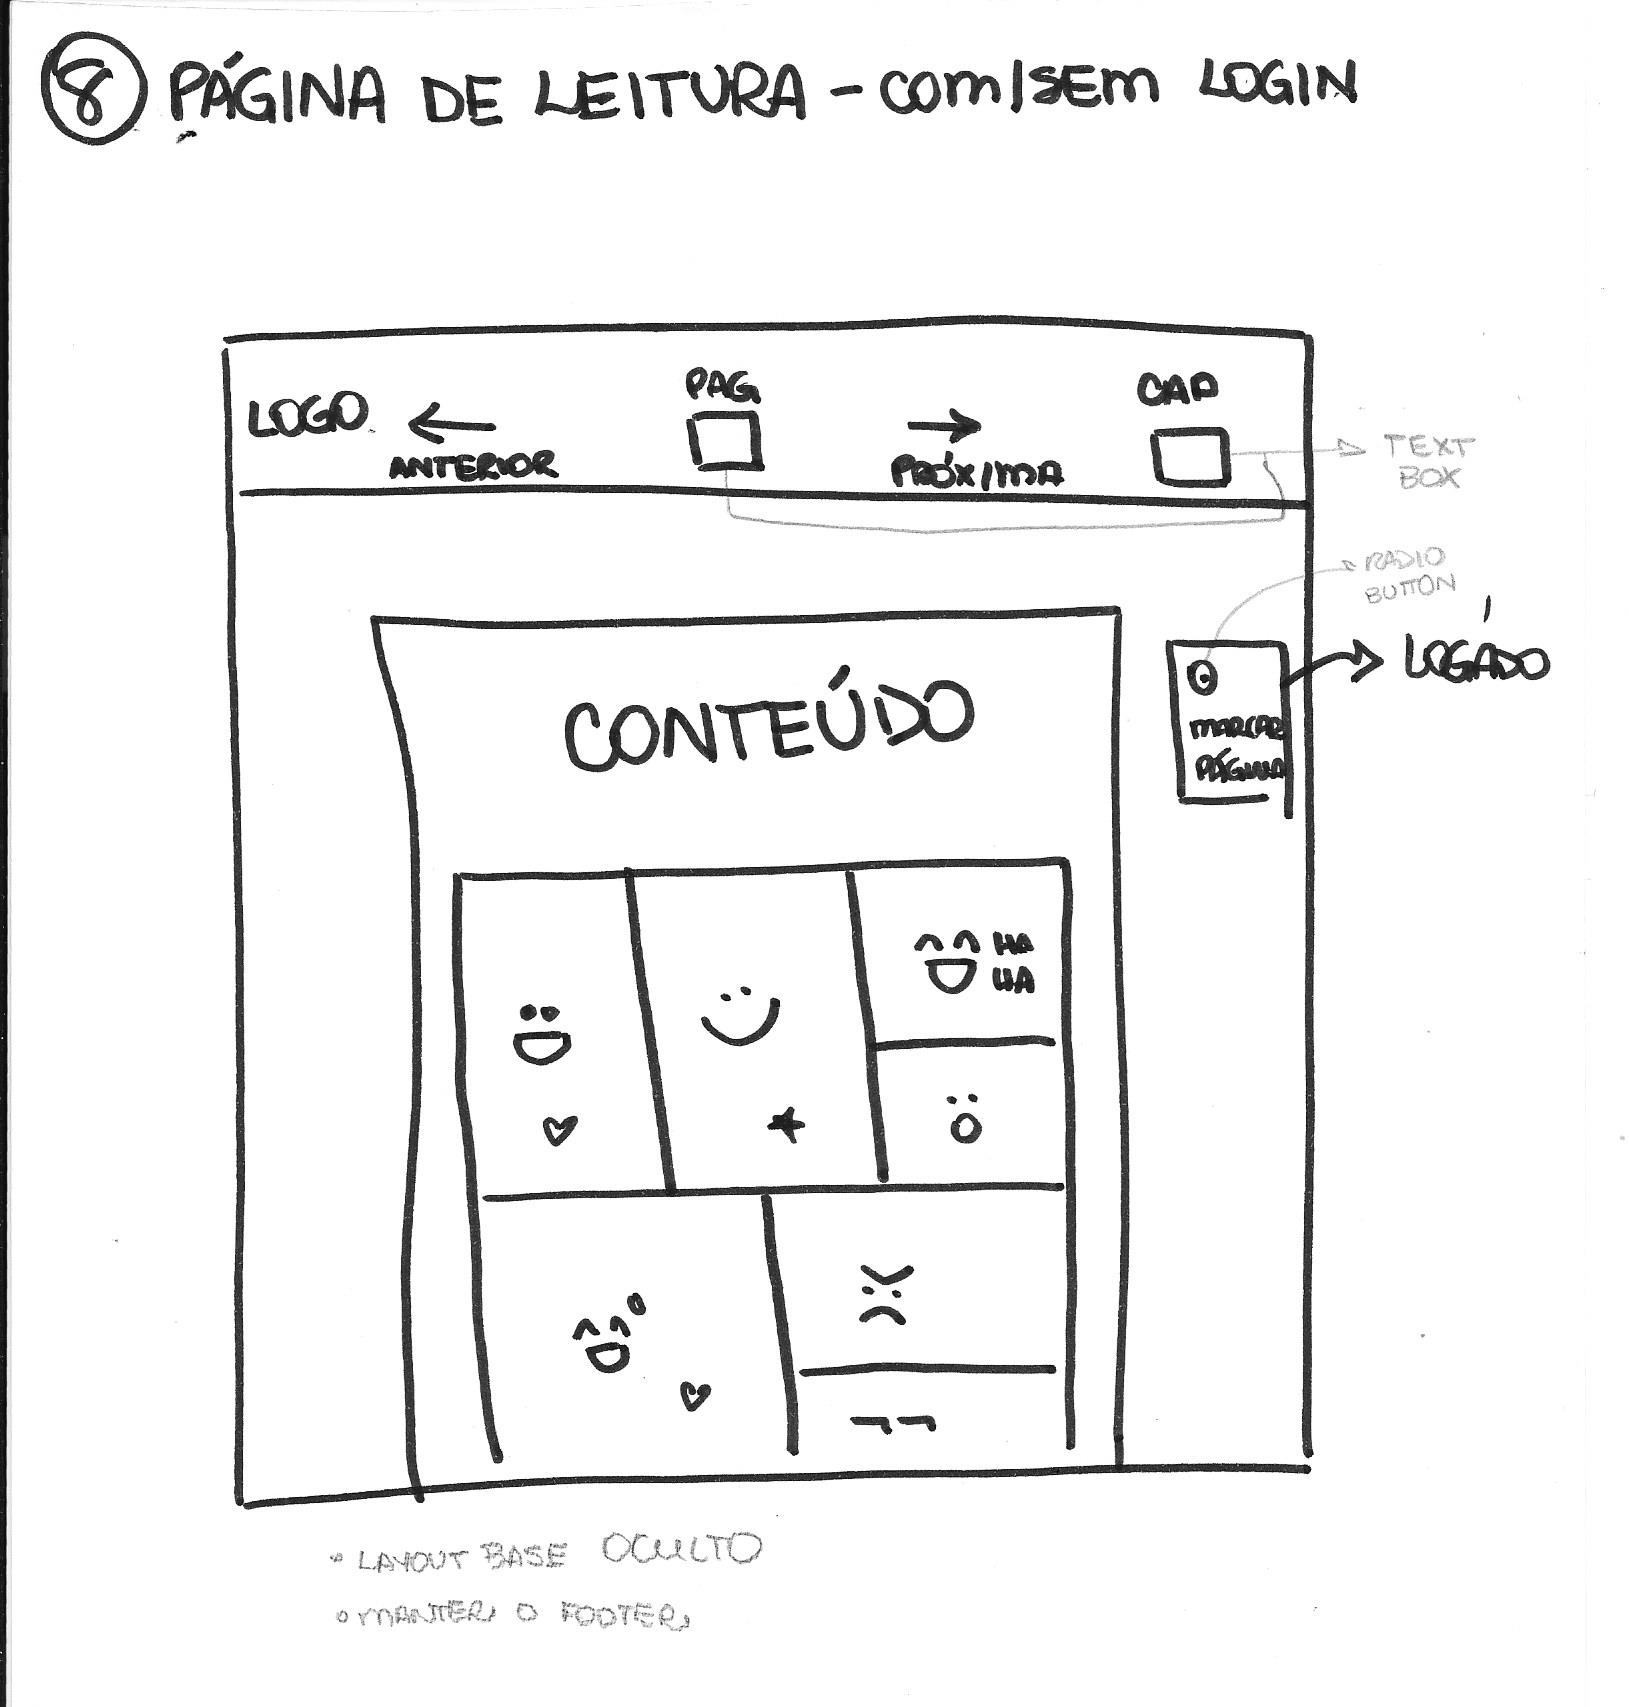 8 PÁGINA DE LEITURA - COM/SEM LOGIN
LOGO
ANTERIOR
PAG
PRÓXIMA
CAP
TEXT
BOX
RADIO
BUTTON
LOGADO
MARCAR
PÁGINA
CONTEÚDO
HA
HA
• LAYOUT BASE OCULTO
• MANTER O FOOTER